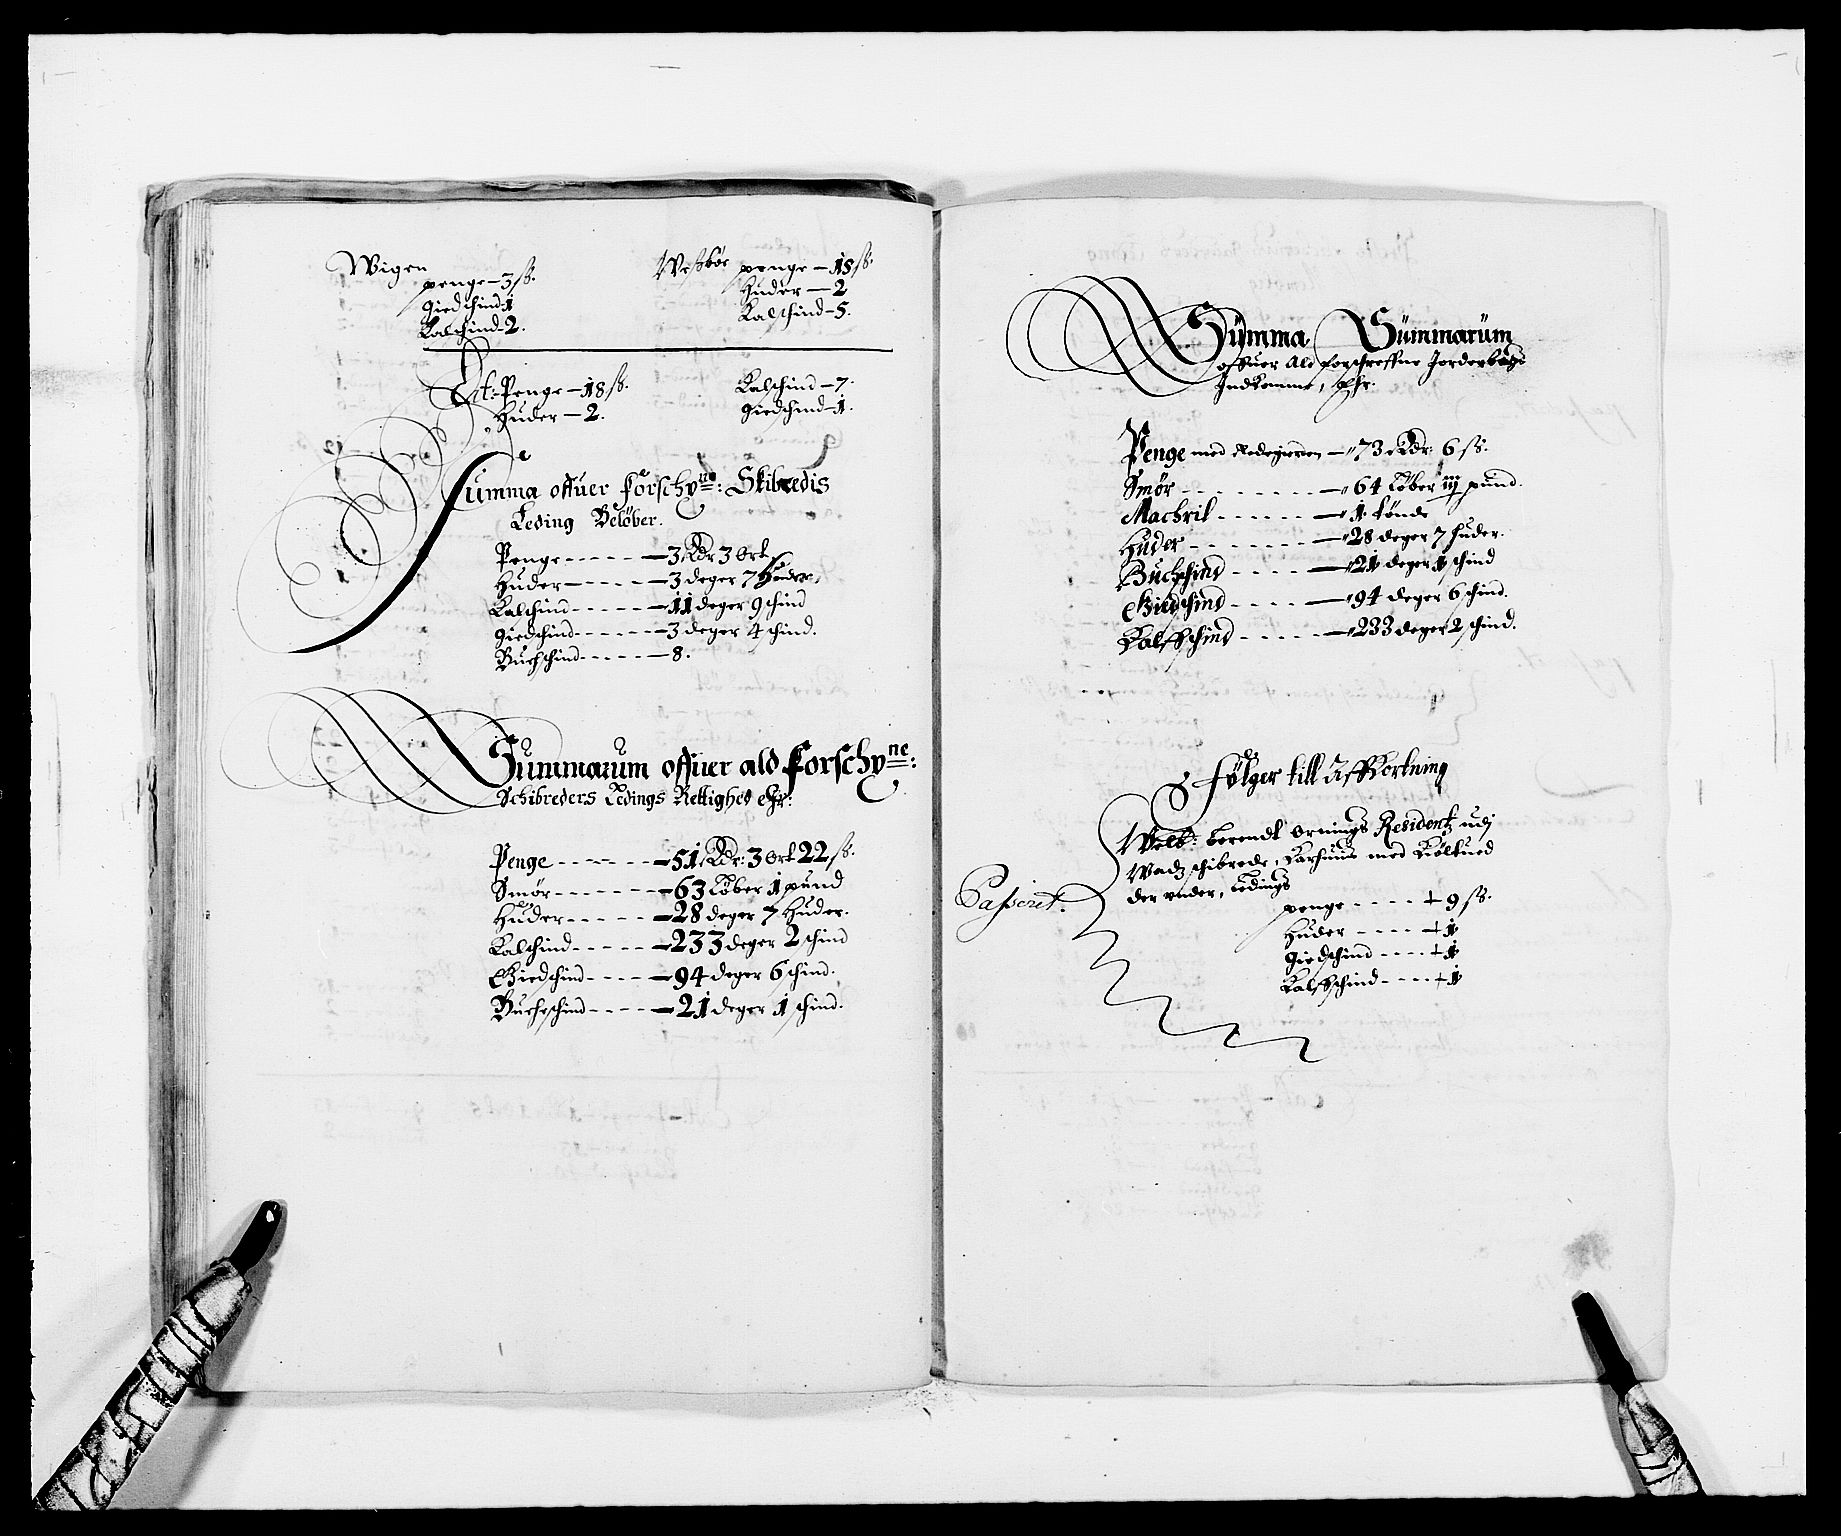 Wigen
penge – 3 ß.
Giedschind 1
Kalschind – 2.
Westbøe penge – 15 ß.
Huder — 2
Kalschind – 5.
Lt: Penge – 18 ß.
Huder – 2.
Kalschind – 7.
Giedschind – 1.
Summa offuer Forschne: Skibredis
Leding Beløber.
Penge - - - - - — 3 Rdr 3 Ort
Huder — - - - - — 3 deger 7 Huder.
Kalschind - - - - - — 11 deger 9 schind
Giedschind - - - - - — 3 deger 4 schind.
Buchschind - - - - — 8.
Summarum offuer ald Forschne:
Schibreders Ledings Rettighed ehr:
Penge - - - - - — 51 Rdr: 3 Ort 22 ß.
Smør - - - - - - — 63 Løber 1 pund
Huder - - - - - — 28 deger 7 Huder.
Kalschind - - - - - — 233 deger 2 schind
Giedschind - - - - — 94 deger 6 schind.
Bucheschind - - - - — 21 deger 1 schind.
Summa Summarum
offuer Ald forschreffne Jorderbogs
Indkomme, ehr.
Penge med — 73 Rdr: 6 ß.
Smør - - - - - - - - — 64 Løber iij pund.
Machril - - - - - - — 1 tønde
Huder - - - - - - - — 28 deger 7 huder.
Buchschind - - - - — 21 deger 1 schind
Giedschind - - - - — 94 deger 6 schind.
Kalffschind - - - - — 233 deger 2 schind.
Følger till Affkortning
Welb: Berendt Ornings Residentz udj
Wadz schibrede, Karhuus med Kiøltued
der under, Ledings
Passeret.
penge - - - - + 9 ß.
Huder - - - - + 1
Giedschind - - - - + 1
Kalffschind - - - - + 1